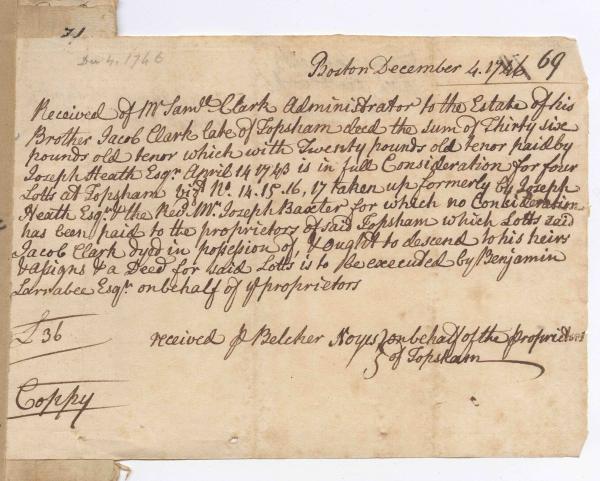 71
Dec 4. 1746
69
Boston December 4. 1746
Received of Mr Samll Clark Administrator to the Estate of his
Brother Jacob Clark late of Topsham deed the Sum of Thirty six
pounds old tenor which with Twenty pounds old tenor paid by
Joseph Heath Esqr April 14 1743 is in full Consideration for four
Lotts at Topsham vizt No. 14. 15. 16, 17 taken up formerly by Joseph
Heath Esqr & the Revd Mr Joseph Baxter for which no Consideration
has been paid to the proprietors of said Topsham which Lotts said
Jacob Clark dyed in possesion of, & ought to descend to his heirs
& asigns & a Deed for said Lotts is to be executed by Benjamin
Larrabee Esqr on behalf of ye proprietors
£36
received p Belcher Noyes on behalf of the proprietors
of Topsham
Coppy